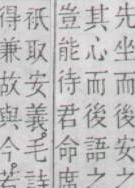 先坐而後安之
其心而後語之
豈能待君命席
祇取安義。毛詩
得兼故與今。若